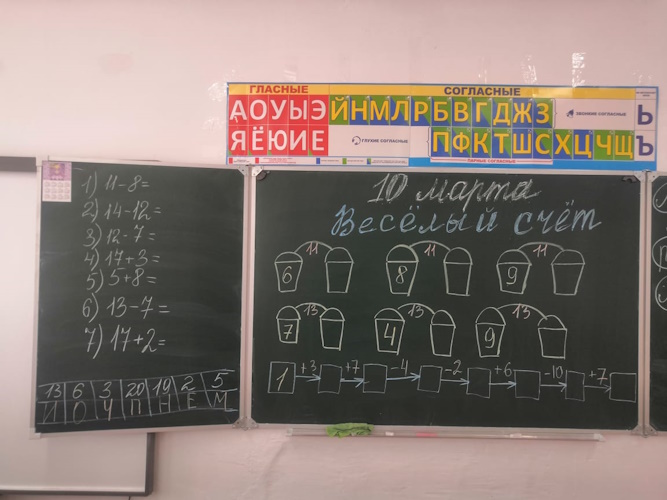 ГЛАСНЫЕ СОГЛАСНЫЕ
А О У Ы Э Й Н М Л Р Б В Г Д Ж З ЗВОНКИЕ СОГЛАСНЫЕ Ь
Я Ё Ю И Е ГЛУХИЕ СОГЛАСНЫЕ П Ф К Т Ш С Х Ц Ч Щ Ъ
ПАРНЫЕ СОГЛАСНЫЕ
1) 11-8=
2) 14-12=
3) 12-7=
4) 17+3=
5) 5+8=
6) 13-7=
7) 17+2=
13 6 3 20 19 2 5
И О Ч П Н Е М
10 марта
Весёлый счёт
11 11 11
6 8 9
13 13 13
7 4 9
1 +3 +7 -4 -2 +6 -10 +7